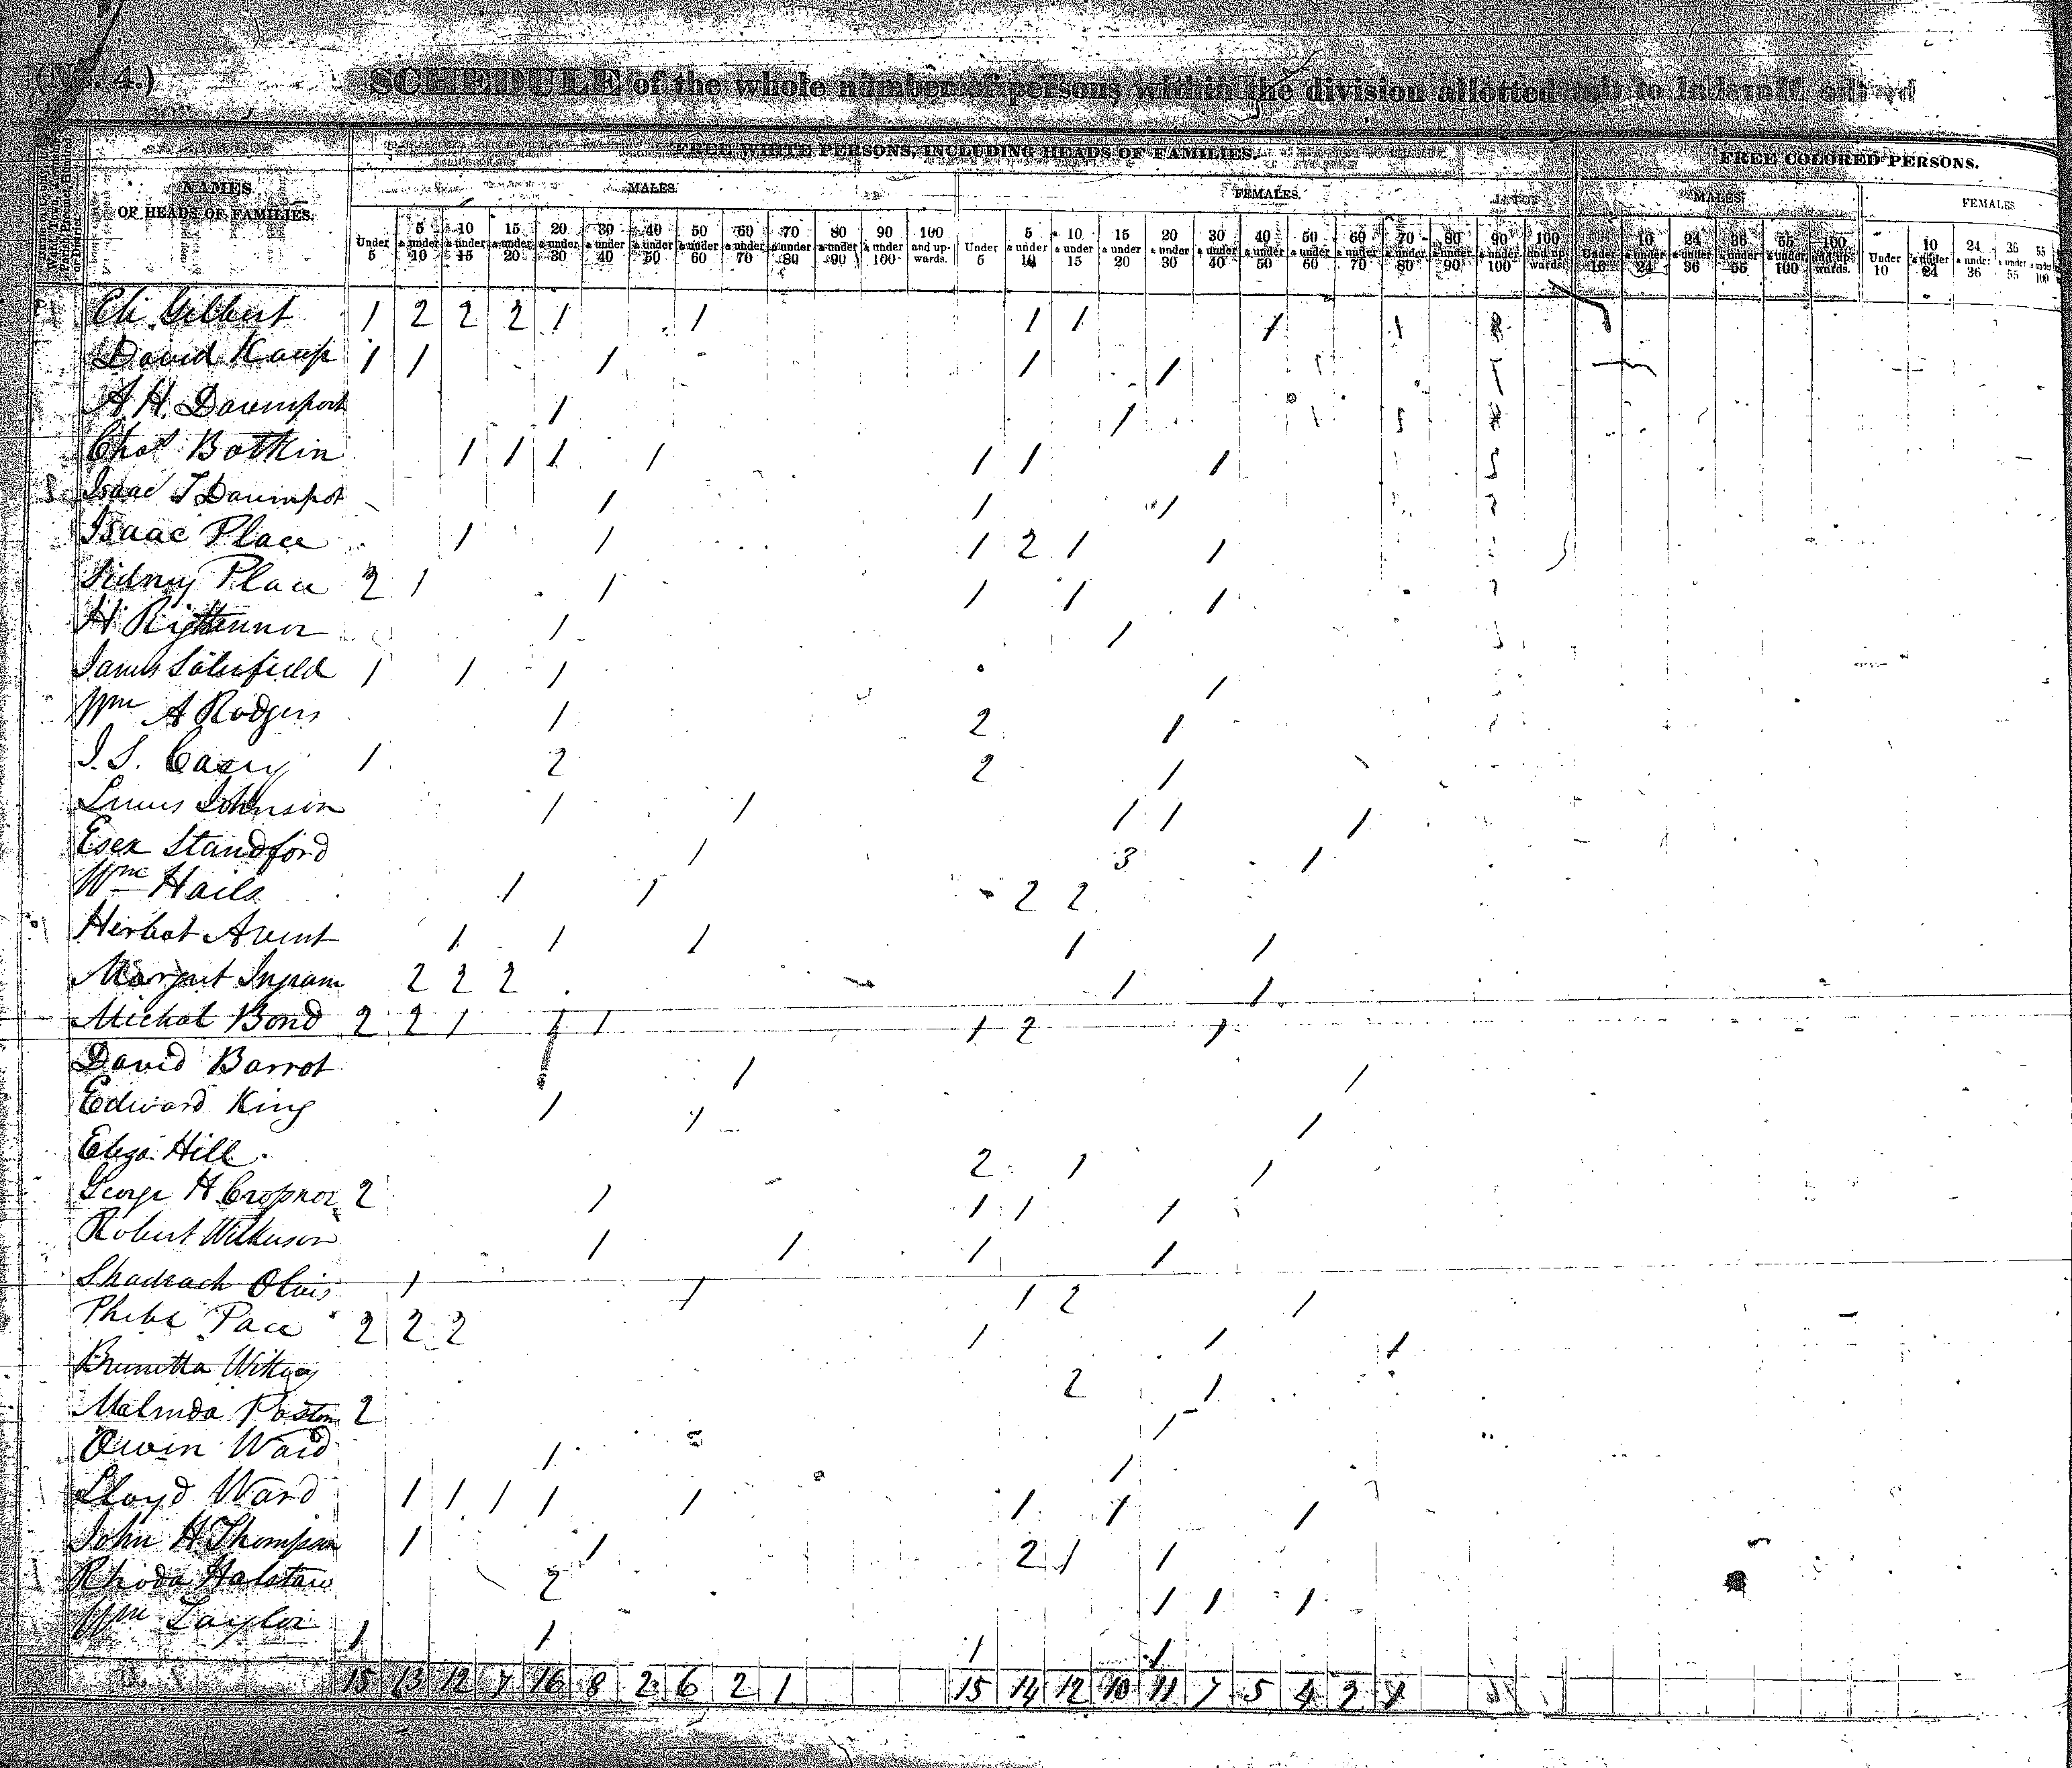 (No. 4.)
SCHEDULE of the whole number of persons within the division allotted to
FREE WHITE PERSONS, INCLUDING HEADS OF FAMILIES.
FREE COLORED PERSONS.
NAMES
OF HEADS OF FAMILIES.
MALES.
FEMALES.
MALES.
FEMALES
Under 5 | 5 & under 10 | 10 & under 15 | 15 & under 20 | 20 & under 30 | 30 & under 40 | 40 & under 50 | 50 & under 60 | 60 & under 70 | 70 & under 80 | 80 & under 90 | 90 & under 100 | 100 and up-wards. | Under 5 | 5 & under 10 | 10 & under 15 | 15 & under 20 | 20 & under 30 | 30 & under 40 | 40 & under 50 | 50 & under 60 | 60 & under 70 | 70 & under 80 | 80 & under 90 | 90 & under 100 | 100 and up-wards. | Under 10 | 10 & under 24 | 24 & under 36 | 36 & under 55 | 55 & under 100 | 100 and up-wards. | Under 10 | 10 & under 24 | 24 & under 36 | 36 & under 55 | 55 & under 100
Eli Gilbert 1 2 2 2 1 1 1 1 1
David Kamp 1 1 1 1 1
A H Davenport 1 1
Chas Botkin 1 1 1 1 1 1 1
Isaac T Davenpot 1 1 1
Isaac Place 1 1 1 2 1 1
Sidney Place 2 1 1 1 1 1
H 1 1
James Satterfield 1 1 1 1
Wm A Rodgers 1 2 1
J. S. 1 2 2 1
Johnson 1 1 1 1 1
Esex Standford 1 3 1
Wm Hails 1 1 2 2
Herbot Avent 1 1 1 1 1
Margret Ingram 2 2 2 1 1
Michal Bond 2 2 1 1 1 1 2 1
David Barrot 1 1
Edward King 1 1 1
Eliza Hill 2 1 1
George H Cropnor 2 1 1 1 1
Robert Wilkerson 1 1 1 1
Shadrach 1 1 1 2 1
Phebe Pace 2 2 2 1 1 1
Brunetta 2 1
Malinda Poston 2 1
Owen Ward 1 1
Lloyd Ward 1 1 1 1 1 1 1 1
John H Thompson 1 1 2 1 1
Rhoda 2 1 1 1
Wm Taylor 1 1 1 1
15 13 12 7 16 8 2 6 2 1 15 14 12 10 11 7 5 4 2 1